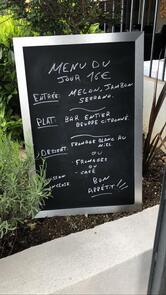 MENU DU
JOUR 16€
ENTRÉE: MELON, JAMBON
SERRANO.
PLAT: BAR ENTIER
BEURRE CITRONNÉ.
DESSERT: FROMAGE BLANC AU
MIEL
OU
FROMAGES
OU
CAFÉ
BON
APPÉTIT!!!